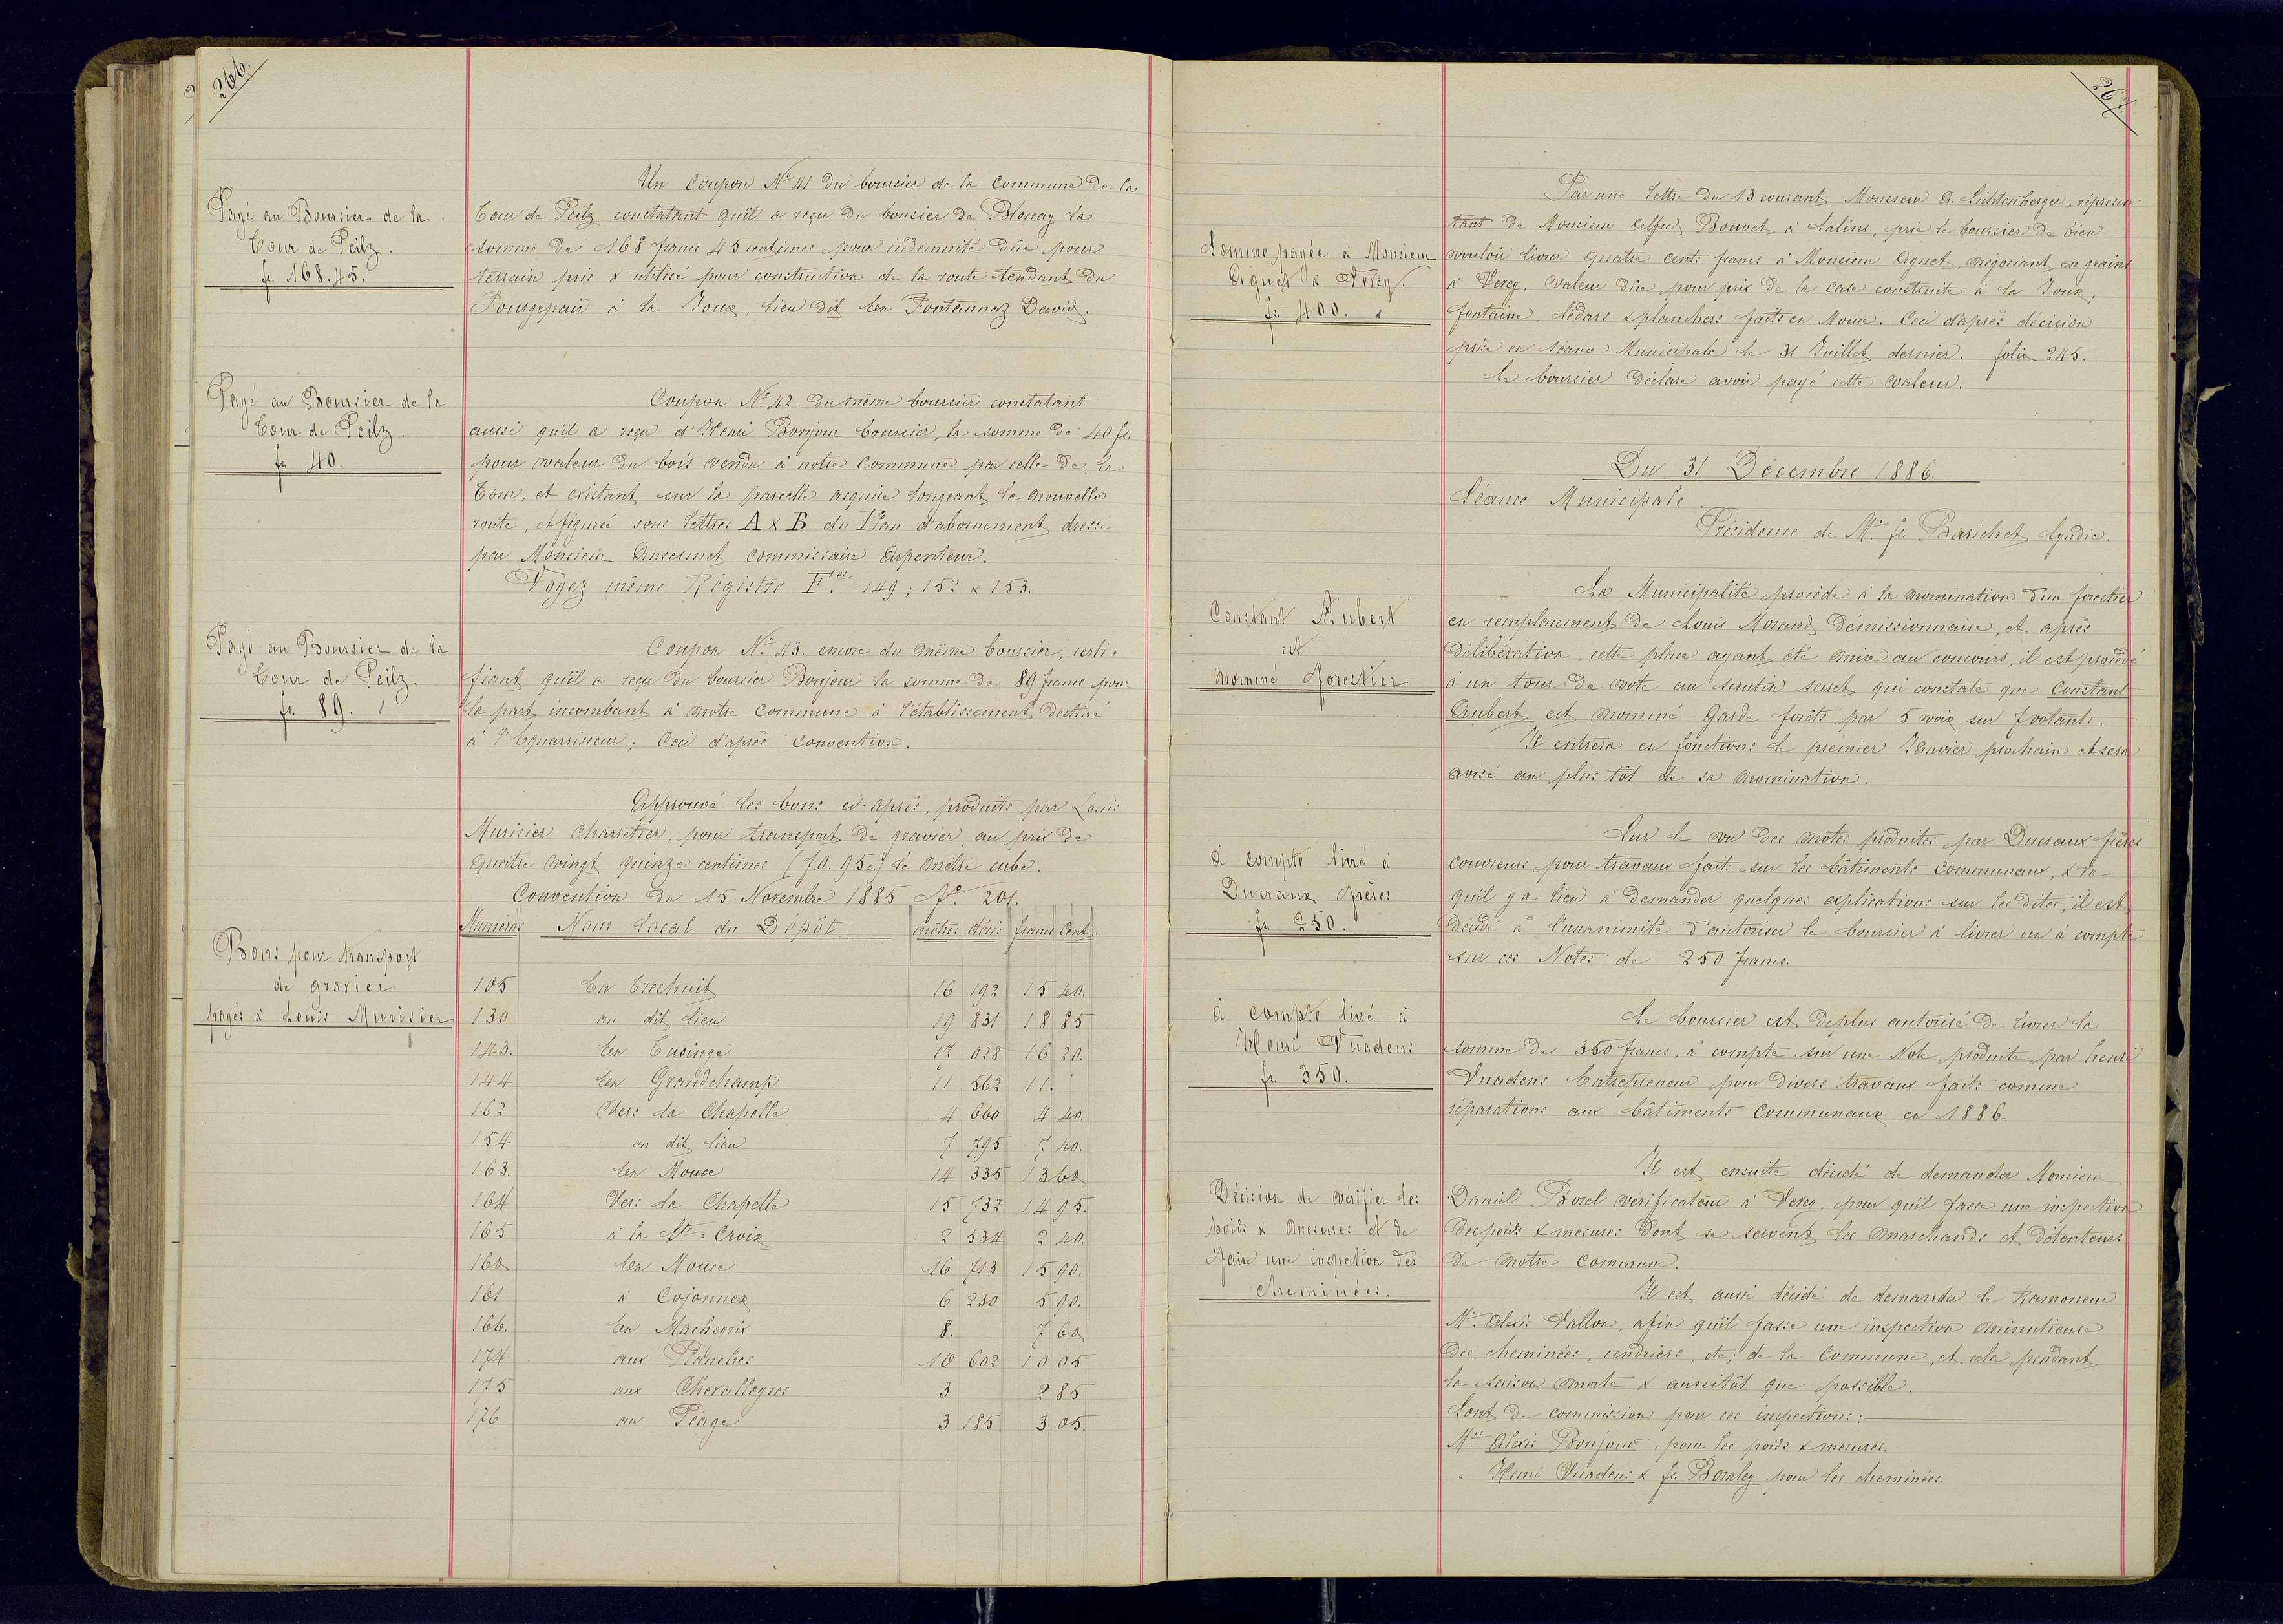 266.
Un Coupon No 41 du boursier de la Commune de la
Payé au Boursier de la
Tour de Peilz.
fr. 168.45.
Tour de Peilz constatant qu'il a reçu du boursier de Blonay la
somme de 168 francs 45 centimes pour indemnité dûe pour
terrain pris & utilisé pour construction de la route tendant du
à la Joux, lieu dit En Fontannaz David.
Payé au Boursier de la
Tour de Peilz.
fr. 40.
Coupon No 42. du même boursier constatant
aussi qu'il a reçu d'Henri Bonjour boursier, la somme de 40 fr.
pour valeur du bois vendu à notre Commune par celle de la
Tour, et existant sur la parcelle acquise longeant la nouvelle
route, et figurée sous lettres A & B du Plan d'abornement dressé
par Monsieur Ansermet Commissaire Arpenteur.
Voyez même Régistre Fos 149; 152 & 153.
Payé au Boursier de la
Tour de Peilz.
fr. 89.
Coupon No 43. encore du même boursier, certi-
fiant qu'il a reçu du boursier Bonjour la somme de 89 francs pour
la part incombant à notre Commune à l'établissement destiné
à l'Equarrisseur; Ceci d'après Convention.
Approuvé les bons ci-après, produits par Louis
Murisier Charretier, pour transport de gravier au prix de
quatre vingt quinze centimes (f. 0. 95 c.) le mètre cube.
Convention du 15 Novembre 1885 No 201.
Bons pour transport
de gravier
payés à Louis Murisier
Numéros Nom local du Dépôt. mètres déci: francs Cent.
105 En Crechuit 16 192 15 40.
130 au dit lieu 19 831 18 85
143. En Tusinge 17 028 16 20.
144 En Grandchamp 11 562 11.
162 Vers la Chapelle 4 660 4 40.
154 au dit lieu 7 795 7 40.
163. En Mouce 14 335 13 60
164 Vers la Chapelle 15 732 14 95.
165 à la Ste-Croix 2 534 2 40.
160 En Mouce 16 713 15 90.
161 à Cojonnex 6 230 5 90.
166. En Machegrix 8. 7 60
174 aux Planches 10 602 10 05
175 aux Chevalleyres 3 2 85
176 au Péage 3 185 3 05.
267.
Par une lettre du 13 courant Monsieur A. Lichtenberger, représen-
Somme payée à Monsieur
Aguet à Vevey.
fr. 400.
tant de Monsieur Alfred Bouvet à Salins, prie le boursier de bien
vouloir livrer quatre cents francs à Monsieur Aguet, négociant en grains
à Vevey, valeur dûe pour prix de la case construite à la Joux,
fontaine, clédars & planchers faits en Mouce. Ceci d'après décision
prise en séance Municipale le 31 Juillet dernier. folio 245.
Le boursier déclare avoir payé cette valeur.
Du 31 Décembre 1886.
Séance Municipale
Présidence de Mr. fs. Barichet Syndic.
Constant Aubert
est
nommé forestier
La Municipalité procède à la nomination d'un forestier
en remplacement de Louis Morand démissionnaire, et après
délibération, cette place ayant été mise au concours, il est procédé
à un tour de vote au scrutin secret qui constate que Constant
Aubert est nommé Garde forêts par 5 voix sur 7 votants.
Il entrera en fonctions le premier Janvier prochain et sera
avisé au plus tôt de sa nomination.
à compte livré à
Ducraux frères
fr. 250.
Sur le vu des notes produites par Ducraux frères
couvreurs pour travaux faits sur les bâtiments communaux, & vu
qu'il y a lieu à demander quelques explications sur les dites, il est
décidé à l'unanimité d'autoriser le boursier à livrer un à compte
sur ces Notes de 250 francs.
à compte livré à
Henri Vuadens
fr. 350.
Le boursier est deplus autorisé de livrer la
somme de 350 francs, à compte sur une Note produite par henri
Vuadens Entrepreneur pour divers travaux faits comme
réparations aux bâtiments Communaux en 1886.
Décision de vérifier les
poids & mesures et de
faire une inspection des
cheminées.
Il est ensuite décidé de demander Monsieur
Daniel Borel vérificateur à Vevey, pour qu'il fasse une inspection
des poids & mesures dont se servent les marchands et détenteurs
de notre Commune.
Il est aussi décidé de demander le Ramoneur
Mr. Alexis Vallon, afin qu'il fasse une inspection minutieuse
des cheminées, cendriers, etc; de la Commune, et cela pendant
la saison morte & aussitôt que possible.
Sont de commission pour ces inspections:
Mrs Alexis Bonjour pour les poids & mesures.
" Henri Vuadens & fs. Bonley pour les cheminées.